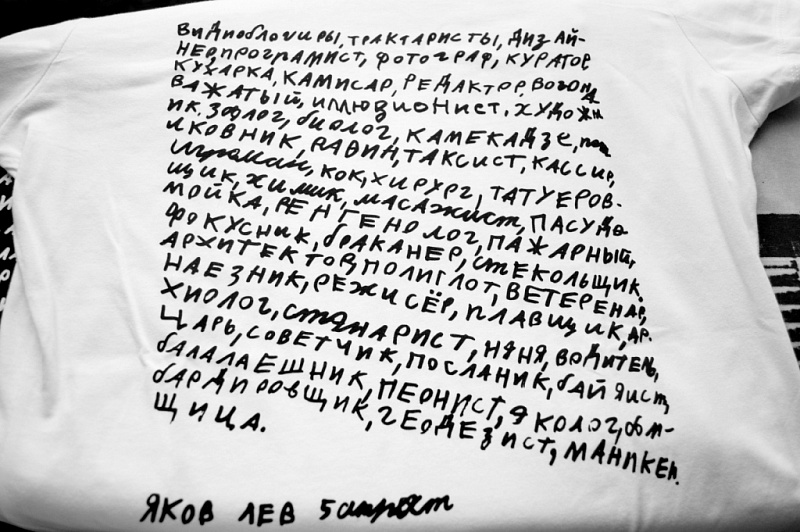 видиоблогиры, трактаристы, дизай-
неопрограмист, фотограф, куратор
кухарка, камисар, редактор, вогон
важатый, иллюзионист, художн
ик, зоолог, биолог, камекадзе, пол
лковник, равин, таксист, кассир,
игроман, кок, хирург, татуеров-
щик, химик, масажист, пасудо
мойка, ренгенолог, пажарный,
фокусник, браканер, стекольщик.
архитектор, полиглот, ветеренар,
наезник, режисёр, плавщик, ар.
хиолог, сценарист, няня, водитель,
царь, советчик, посланик, байянист,
балалаешник, пеонист, эколог, бом-
бардировщик, геодезист, маникен.
щица.
ЯКОВ ЛЕВ 5